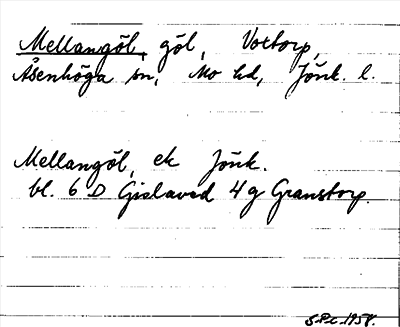 Mellangöl, göl, Voxtorp,
Åsenhöga sn, Mo hd, Jönk. l.
Mellangöl, ek Jönk.
bl. 6 D Gislaved 4 g Granstorp.
1958.